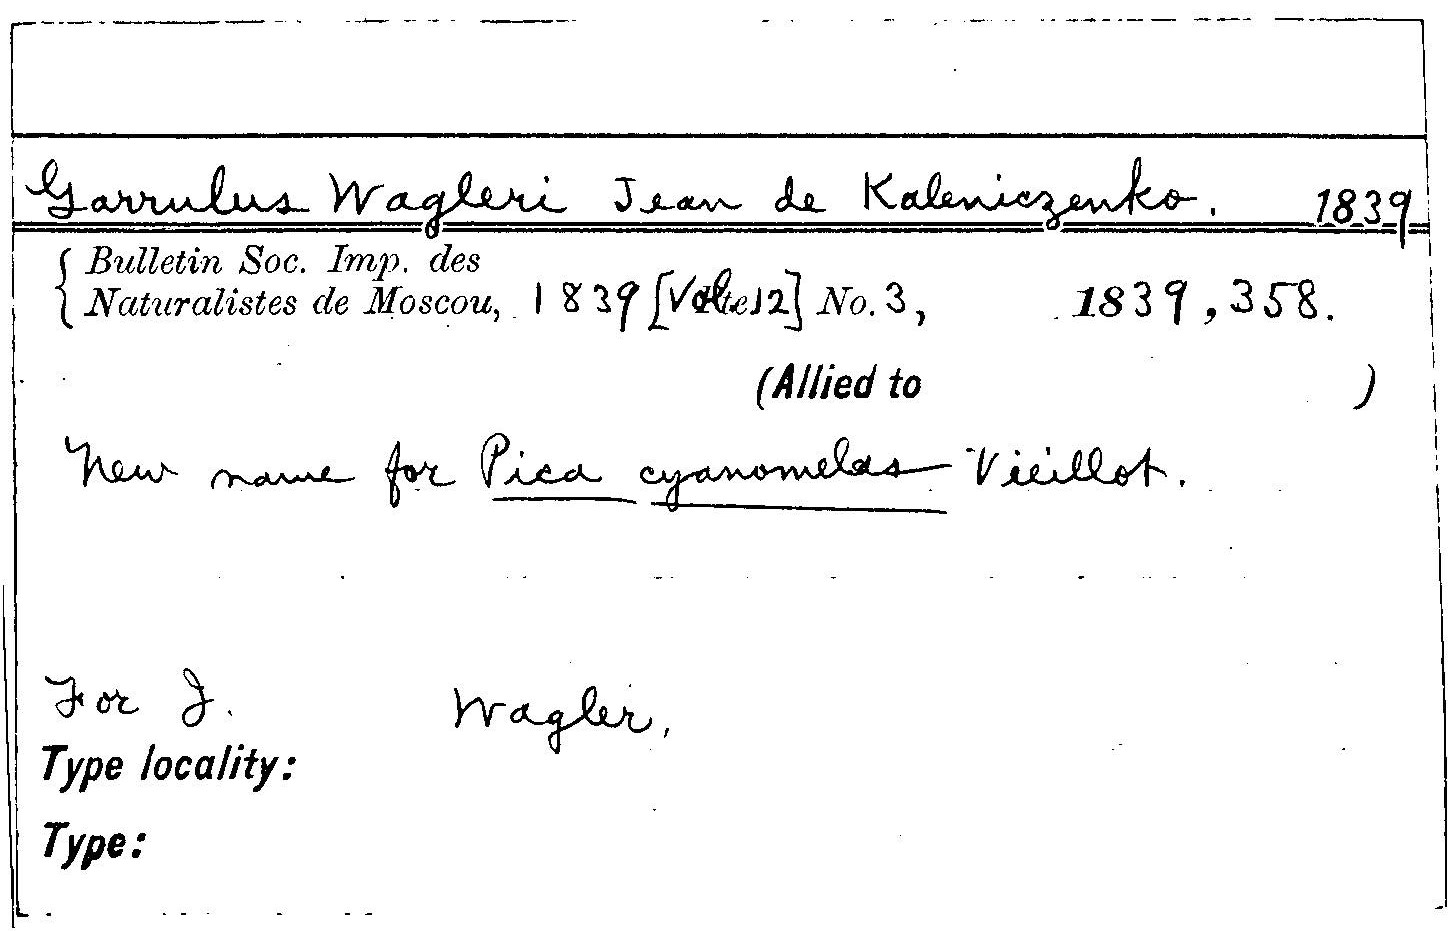 Garrulus Wagleri Jean de Kaleniczenko. 1839
Bulletin Soc. Imp. des
Naturalistes de Moscou, 1839 [Vol. 12] No. 3, 1839, 358.
(Allied to )
New name for Pica cyanomelas Vieillot.
For J. Wagler,
Type locality:
Type: